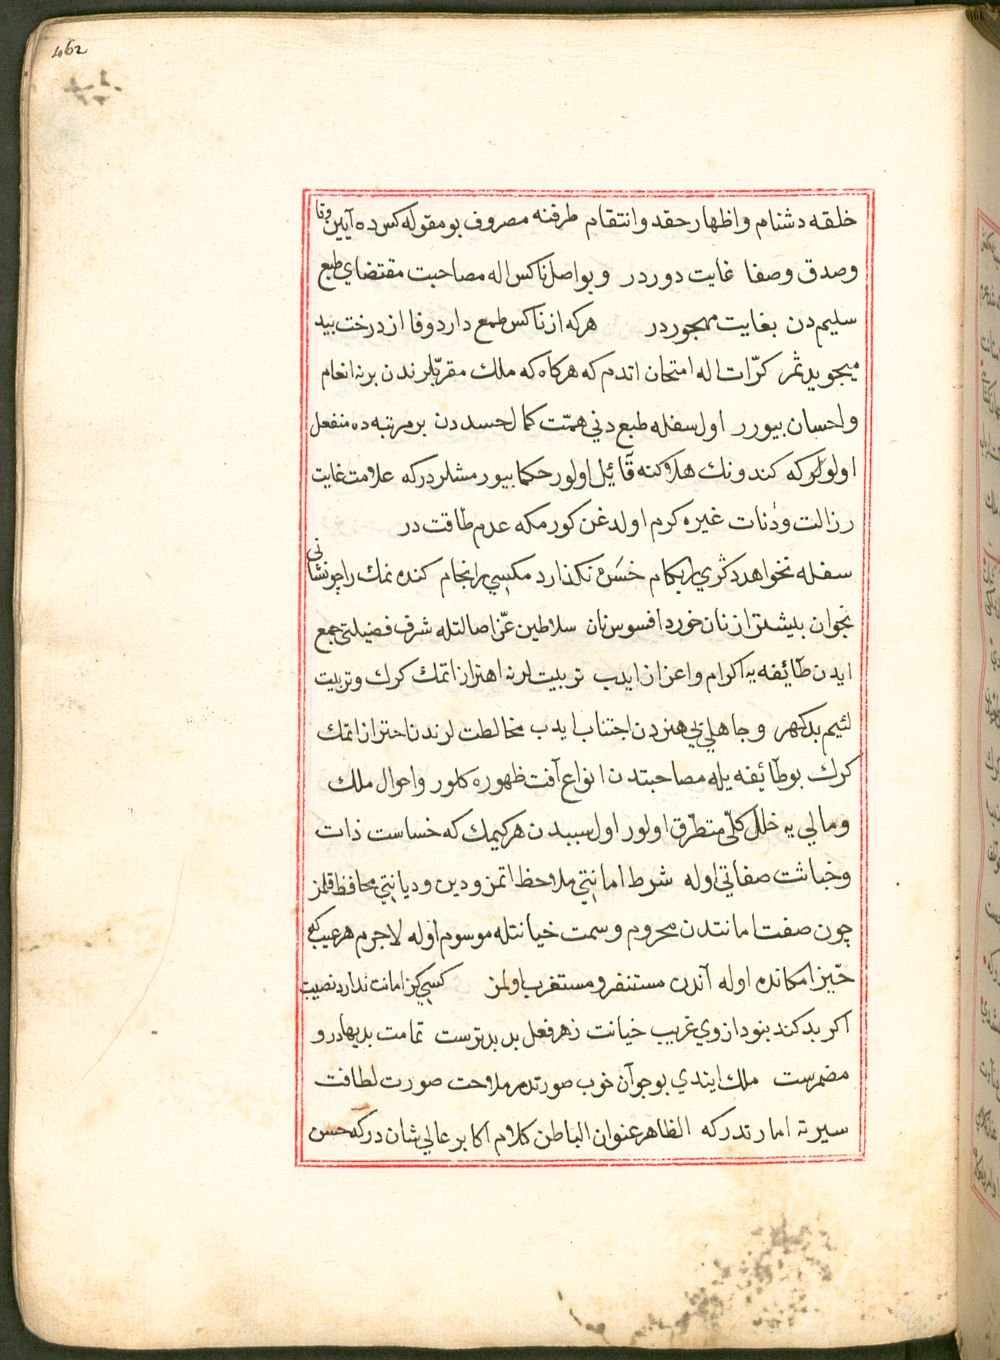 462
خلقه دشنام واظهار حقد وانتقام طرفنه مصروف بومقوله كس ده آيين وفا
وصدق وصفا غايت دوردر وبواصل ناكس اله مصاحبت مقتضاي طبع
سليم دن بغايت مهجوردر هركه از ناكس طمع دارد وفا از درخت بيد
ميجويد ثمر كرّات اله امتحان اتدم كه هركاه كه ملك مقرّبلرندن برنه انعام
واحسان بيورر اول سفله طبع دني همّت كمال حسددن بر مرتبه ده منفعل
اولور كه كندونك هلاكنه قآئيل اولور حكما بيورمشلردركه علامت غايت
رزالت ودنات غيره كرم اولدغن كورمكه عدم طاقت در
سفله نخواهد دكري رابكام خس نكذارد مكسي رانجام كنده نمك را چو نشانى
نجوان بيشتر از نان خورد افسوس نان سلاطين عزّ اصالتله شرف فضيلتي جمع
ايدن طآئفه يه اكرام واعزاز ايدب تربيت لرنه اهتزاز اتمك كرك وتربيت
لئيم بد كهر وجاهل بي هنردن اجتناب ايدب مخالطت لرندن احتراز اتمك
كرك بوطآئفه يله مصاحبتدن انواع آفت ظهوره كلور واحوال ملك
ومالي يه خلل كلّي متطرّق اولور اول سببدن هركيمك كه خساست ذات
وخباثت صفاتي اوله شرط امانتي ملاحظ اتمز ودين وديانتي محافظ قلمز
چون صفت امانتدن محروم وسمت خيانتله موسوم اوله لاجرم هر عيب كه
حيّز امكانده اوله آندن مستنفر ومستغرب اولمز كسي كز امانت ندارد نصيب
اكر بد كند بنود ازوي غريب خيانت زهر فعل بد بدترست تمامت بديها درو
مضمرست ملك ايندي بوجوآن خوب صورتدر ملاحت صورت لطافت
سيرته امارتدركه الظاهر عنوان الباطن كلام اكابر عالي شان دركه حسن